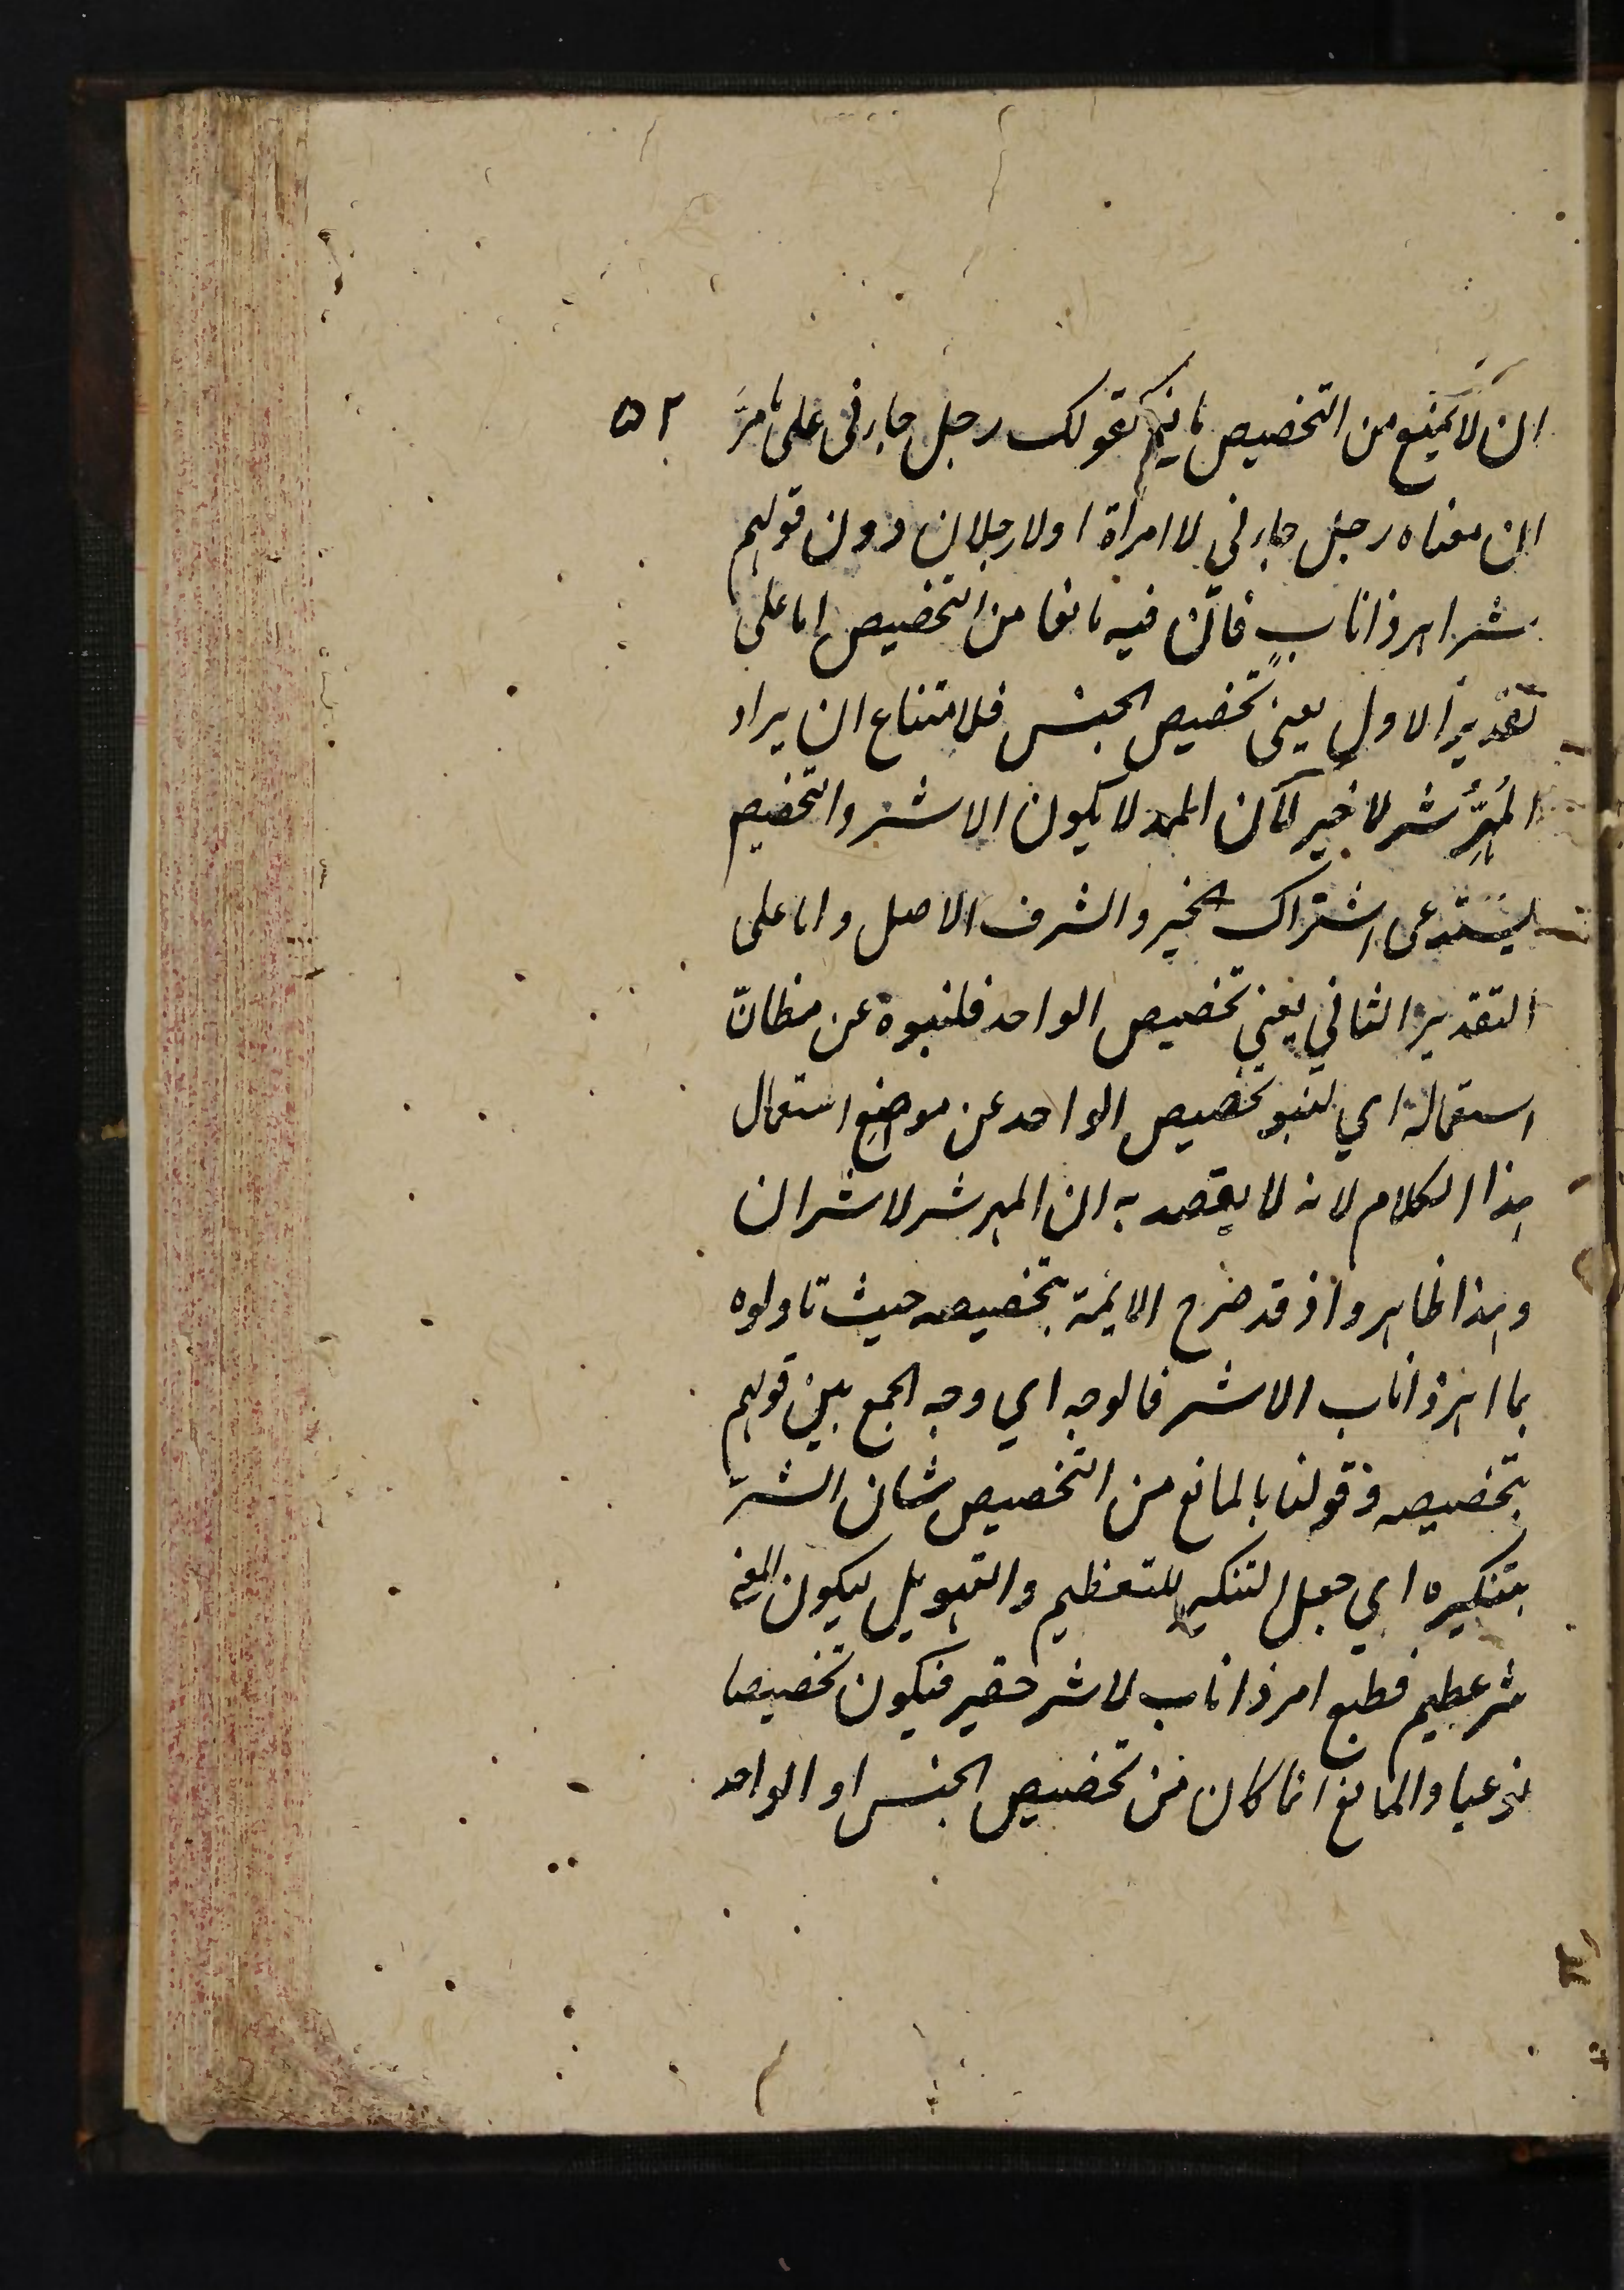 ان لا يمنع من التخصيص مانع كقولك رجل جاءنى على ما مرَّ ٥٢
ان معناه رجل جاءنى لا امرأة او لا رجلان دون قولهم
شر اهر ذا نابٍ فانّ فيه مانعا من التخصيص اما على
تقدير الاول يعنى تخصيص الجنس فلامتناع ان يراد
المُهِرُّ شر لا خير لان المهر لا يكون الا شر والتخصيص
يستدعى اشتراك الخير والشر ف الاصل واما على
التقدير الثاني يعني تخصيص الواحد فلنبوه عن مظانّ
استعماله اي لنبو تخصيص الواحد عن موضع استعمال
هذا الكلام لانه لا يقصد به ان المهر شر لا شران
وهذا ظاهر واذ قد صرح الايمة بتخصيصه حيث تاولوه
بما اهر ذا ناب الا شر فالوجه اي وجه الجمع بين قولهم
بتخصيصه وقولنا بالمانع من التخصيص شان الشرّ
بتنكيره اي جعل التنكير للتعظيم والتهويل ليكون المعنى
شر عظيم فطيع اهر ذا ناب لا شر حقير فيكون تخصيصا
نوعيا والمانع انما كان من تخصيص الجنس او الواحد